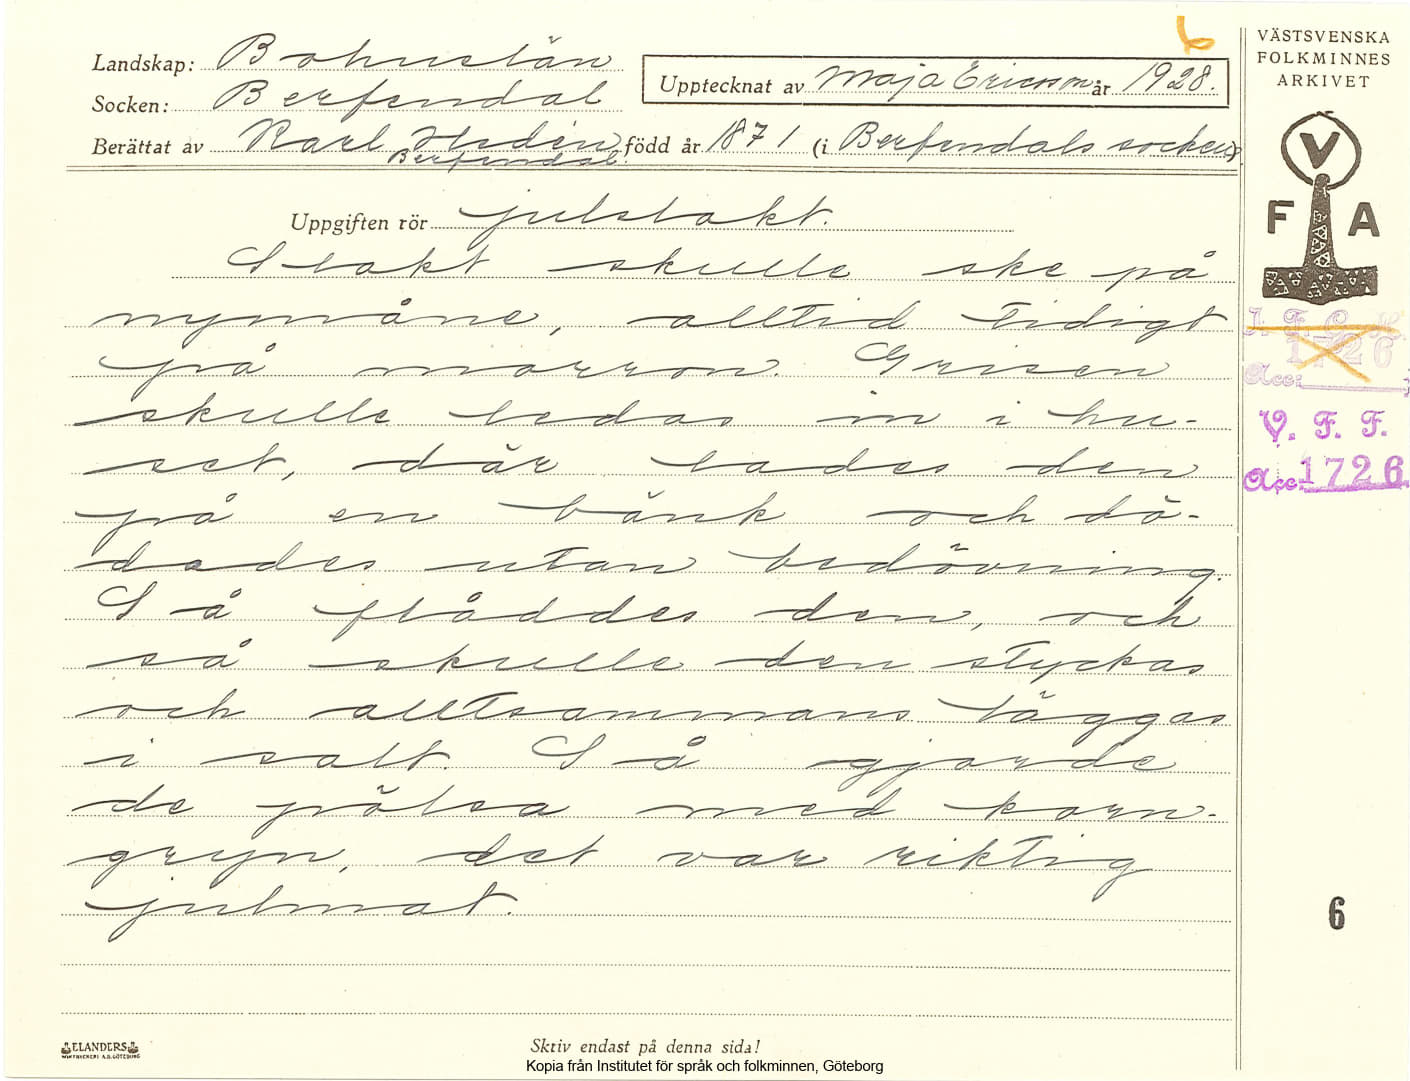 6
Landskap: Bohuslän
Socken: Berfendal
Upptecknat av Maja Ericsson år 1928.
Berättat av Karl Hedén, född år 1871 (i Berfendals socken)
Berfendal.
Uppgiften rör julslakt.
Slakt skulle ske på
nymåne, alltid tidigt
på morron. Grisen
skulle ledas in i hu-
set, där lades den
på en bänk och dö-
dades utan bedövning.
Så flåddes den, och
så skulle den styckas
och alltsammans läggas
i salt. Så gjorde
de pölsa med korn-
gryn, det var riktig
julmat.
VÄSTSVENSKA
FOLKMINNES
ARKIVET
V
F A
1726
Acc:
V. F. F.
Acc: 1726
6
ELANDERS
Skriv endast på denna sida!
Kopia från Institutet för språk och folkminnen, Göteborg